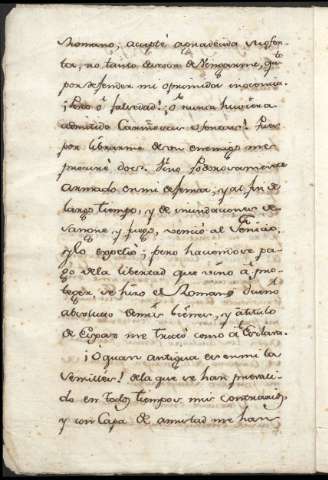 Romano, acepté agradecida su ofer-
ta, no tanto deseosa de Vengarme, qto
por defender mi oprimida inocencia.
¡Pero ô falsedad! ¡O nunca huviera
admitido Cariñosas ofertas! Pues
por librarme de un enemigo me
procuré dos. Vino poderosamente
armado en mi defensa, y al fin de
largo tiempo, y de inundaciones de
sangre, y fuego, venció al
y lo expelió; pero haviendose pa-
gado dela libertad que vino â pro-
teger se hizo el Romano dueño
absoluto demis bienes, y âtitulo
de Esposa me trató como â Esclava.
¡O quan antigua es en mi la
semilla! dela que se han
do en todos tiempos mis contrarios,
y con Capa de amistad me han